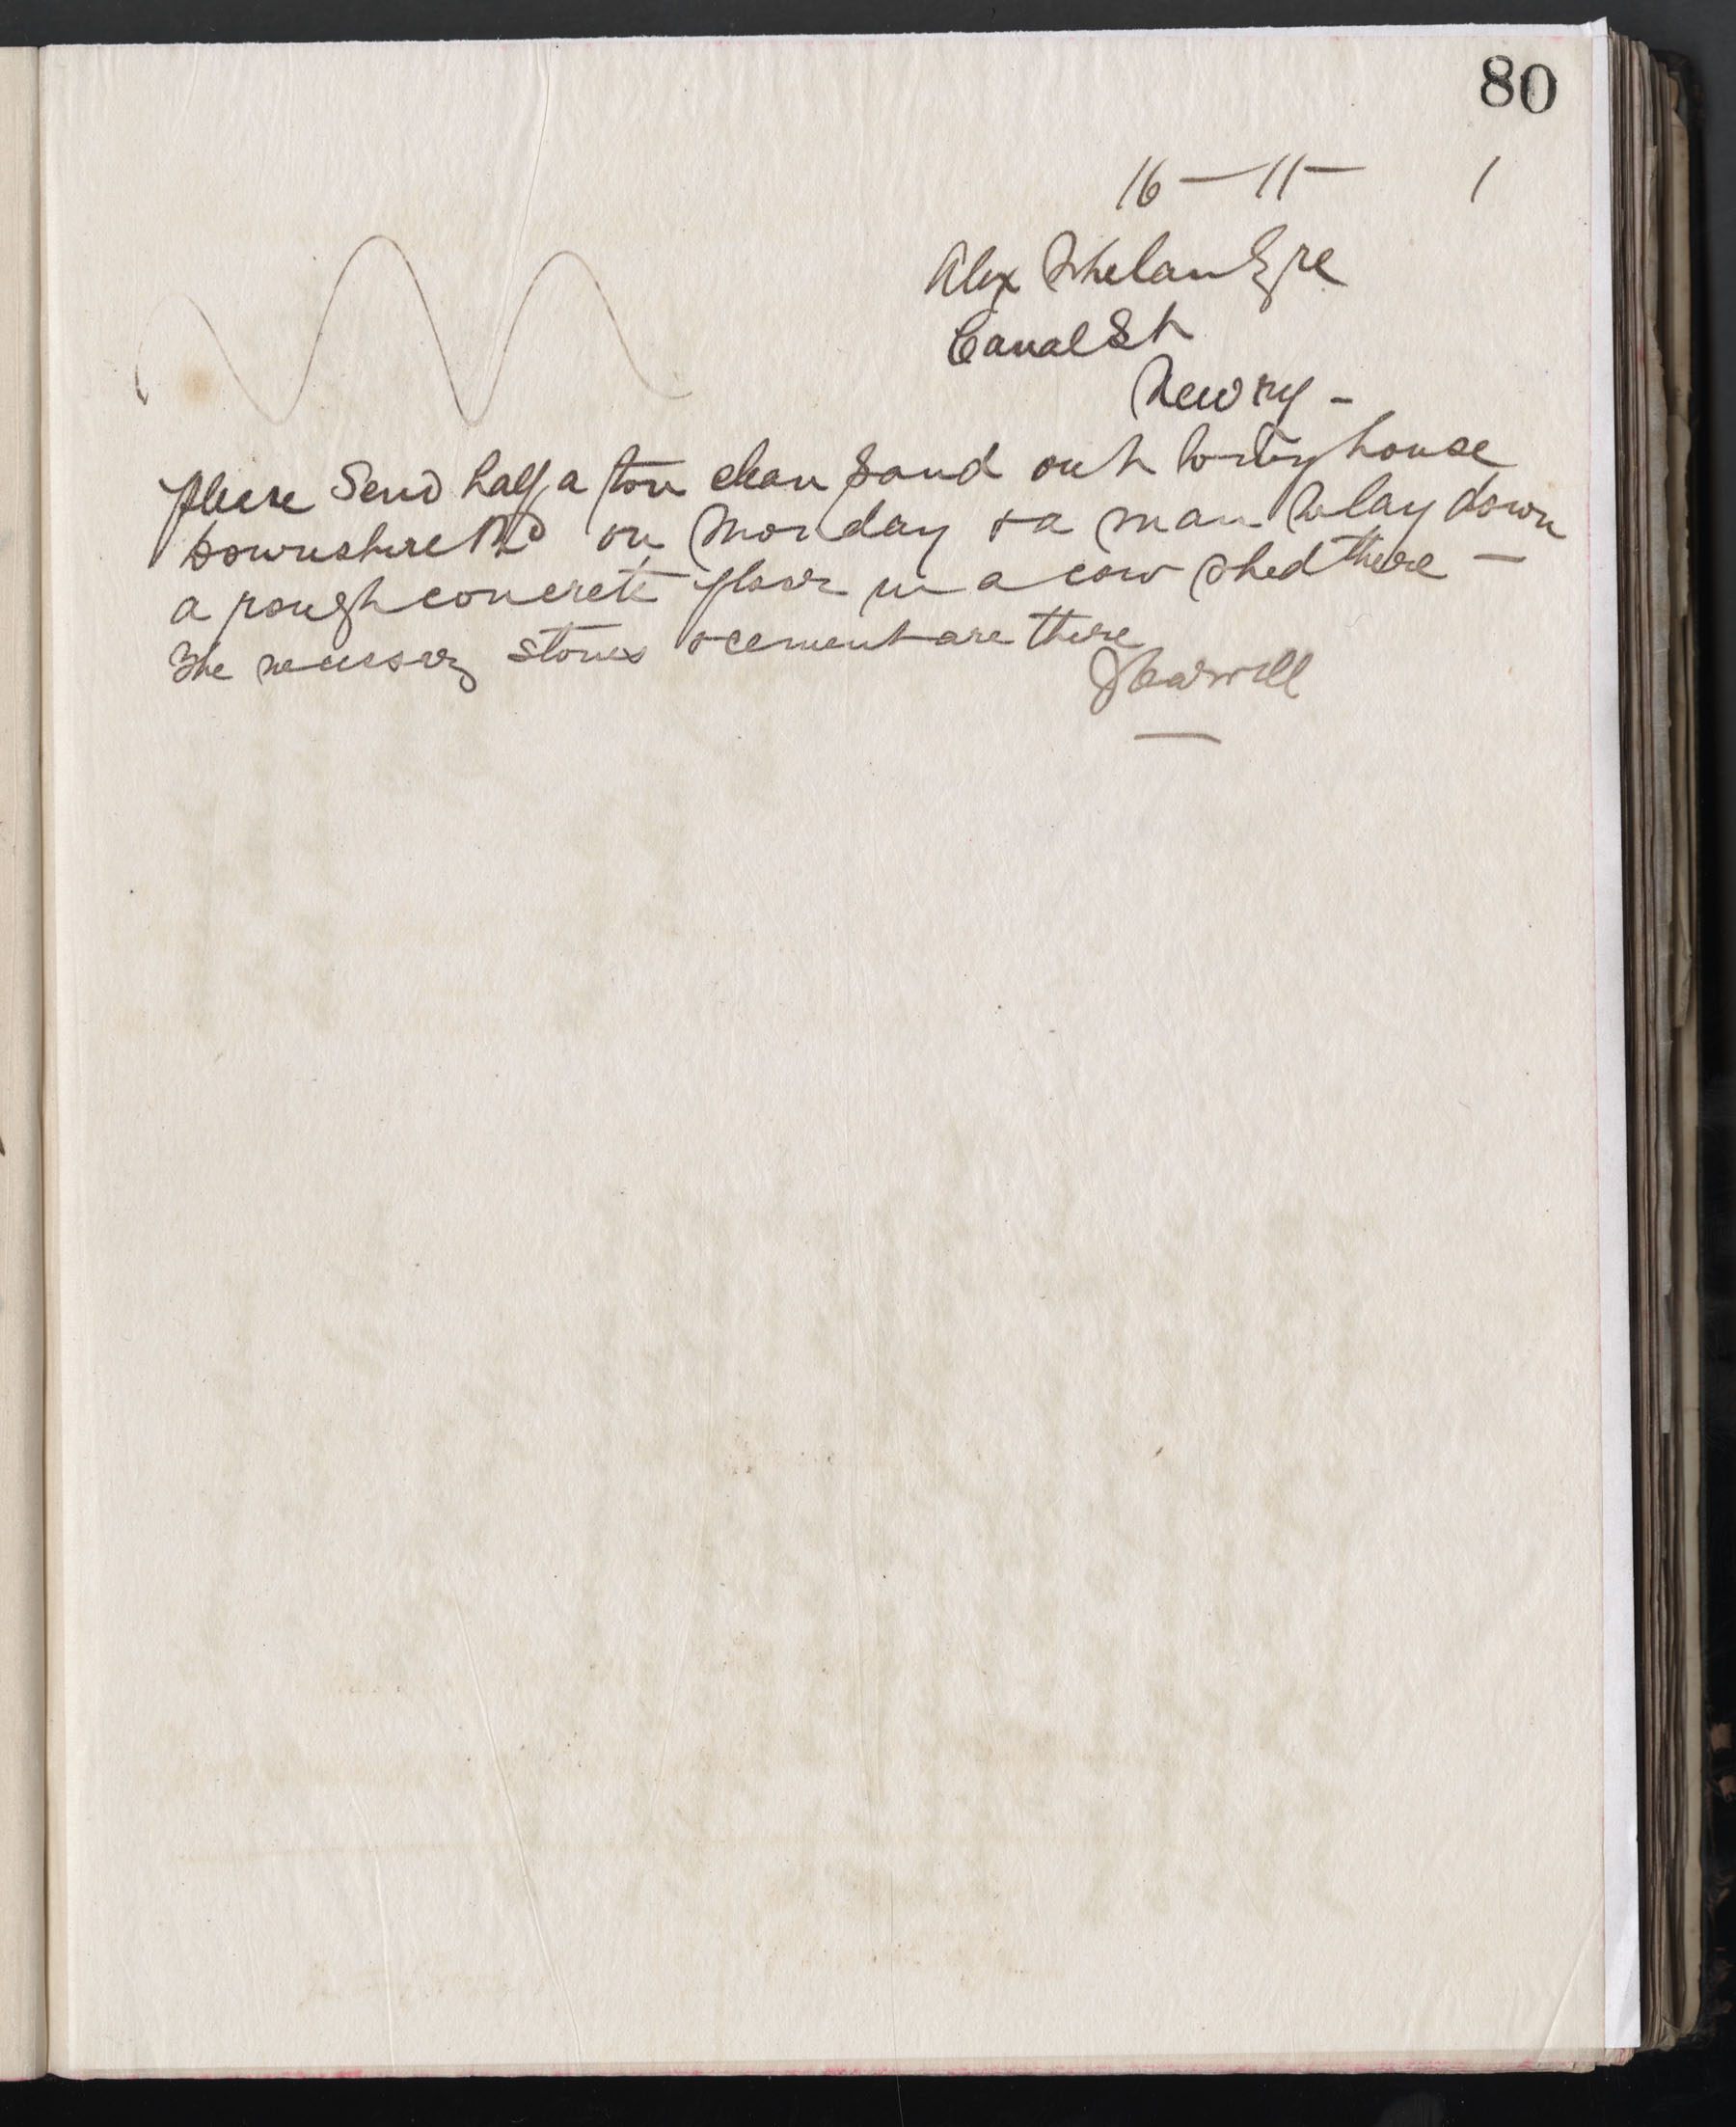 80
16 - 11 - 1
Alex Whelan Esqre
Canal St
Newry -
Please Send half a ton clean Sand out to my house
Downshire Rd on Monday & a man to lay down
a rough concrete floor in a cow shed there -
The necessary stones & cement are there